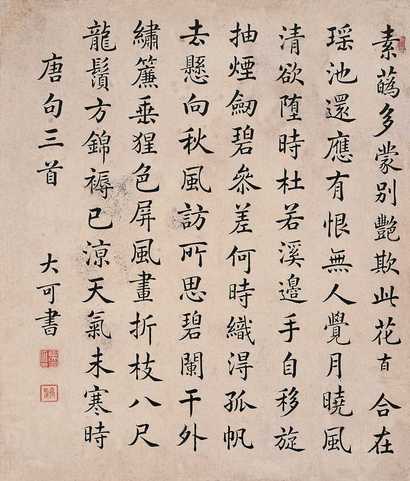 素蘤多蒙別艷欺此花合在
瑤池還應有恨無人覺月曉風
清欲墮時杜若溪邊手自移旋
抽煙劒碧參差何時織得孤帆
去懸向秋風訪所思碧闌干外
繡簾垂猩色屏風畫折枝八尺
龍鬚方錦褥已涼天氣未寒時
唐句三首
大可書